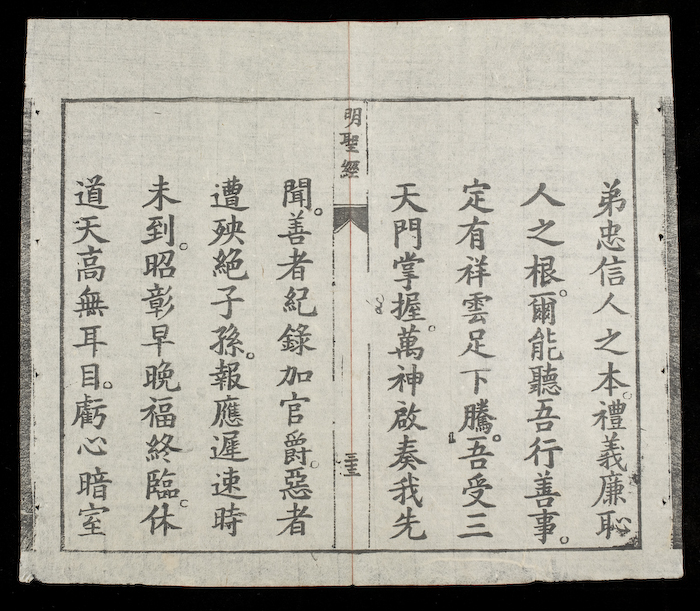 弟忠信人之本。禮義廉恥
人之根。爾能聽吾行善事。
定有祥雲足下騰。吾受三
天門掌握。萬神啟奏我先
明聖經
三十三
聞。善者紀錄加官爵。惡者
遭殃絕子孫。報應遲速時
未到。昭彰早晚福終臨。休
道天高無耳目。虧心暗室